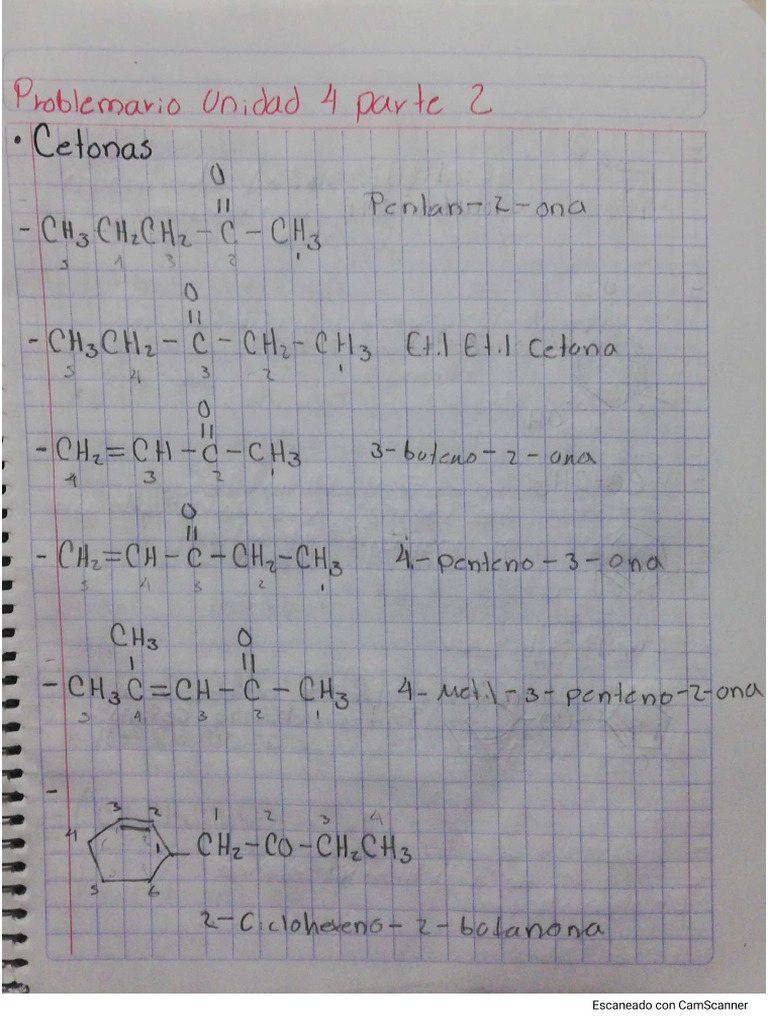 Problemario Unidad 4 parte 2
• Cetonas
O
||
- CH3CH2CH2 - C - CH3 Pentan-2-ona
5 4 3 2 1
O
||
- CH3CH2 - C - CH2 - CH3 Etil Etil Cetona
5 4 3 2 1
O
||
- CH2=CH - C - CH3 3-buteno-2-ona
4 3 2 1
O
||
- CH2=CH - C - CH2 - CH3 4-penteno-3-ona
5 4 3 2 1
CH3 O
| ||
- CH3C=CH - C - CH3 4-Metil-3-penteno-2-ona
5 4 3 2 1
-
3 2 1 2 3 4
4 1 CH2-CO-CH2CH3
5 6
2-Ciclohexeno-2-butanona
Escaneado con CamScanner